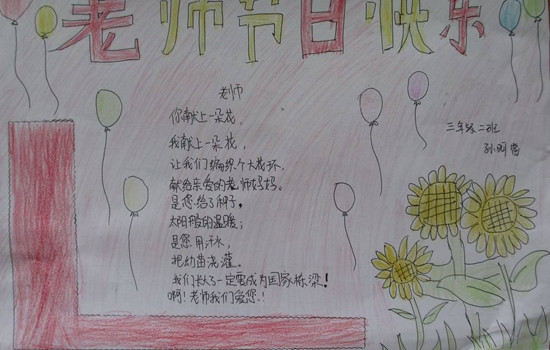 老师节日快乐
老师
你献上一朵花,
我献上一朵花,
让我们编织个大花环,
献给亲爱的老师妈妈。
是您给了种子,
太阳般的温暖;
是您用汗水,
把幼苗浇灌。
我们长大了一定要成为国家栋梁!
啊!老师我们爱您!
三年级二班
孙